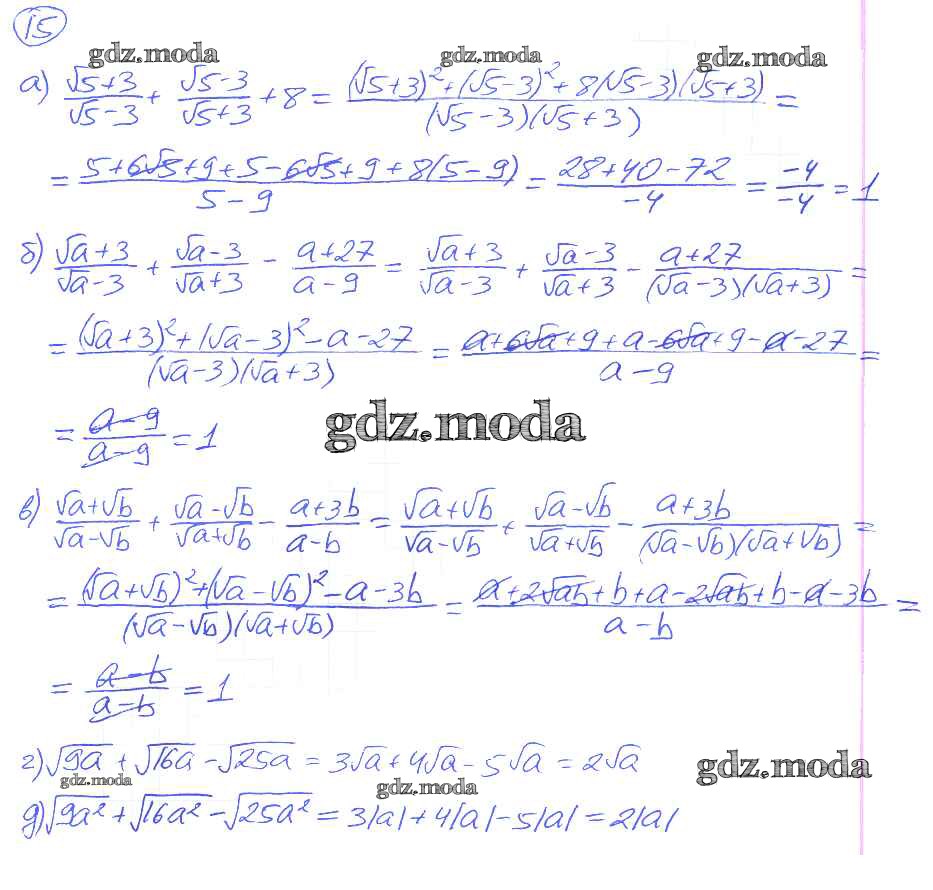 15
gdz.moda gdz.moda gdz.moda
а) (√5+3)/(√5-3) + (√5-3)/(√5+3) + 8 = ((√5+3)²+(√5-3)²+8(√5-3)(√5+3))/((√5-3)(√5+3)) =
= (5+6√5+9+5-6√5+9+8(5-9))/(5-9) = (28+40-72)/(-4) = (-4)/(-4) = 1
б) (√a+3)/(√a-3) + (√a-3)/(√a+3) - (a+27)/(a-9) = (√a+3)/(√a-3) + (√a-3)/(√a+3) - (a+27)/((√a-3)(√a+3)) =
= ((√a+3)²+(√a-3)²-a-27)/((√a-3)(√a+3)) = (a+6√a+9+a-6√a+9-a-27)/(a-9) =
= (a-9)/(a-9) = 1
gdz.moda
в) (√a+√b)/(√a-√b) + (√a-√b)/(√a+√b) - (a+3b)/(a-b) = (√a+√b)/(√a-√b) + (√a-√b)/(√a+√b) - (a+3b)/((√a-√b)(√a+√b)) =
= ((√a+√b)²+(√a-√b)²-a-3b)/((√a-√b)(√a+√b)) = (a+2√ab+b+a-2√ab+b-a-3b)/(a-b) =
= (a-b)/(a-b) = 1
г) √9a + √16a - √25a = 3√a + 4√a - 5√a = 2√a
gdz.moda gdz.moda gdz.moda
д) √9a² + √16a² - √25a² = 3|a| + 4|a| - 5|a| = 2|a|